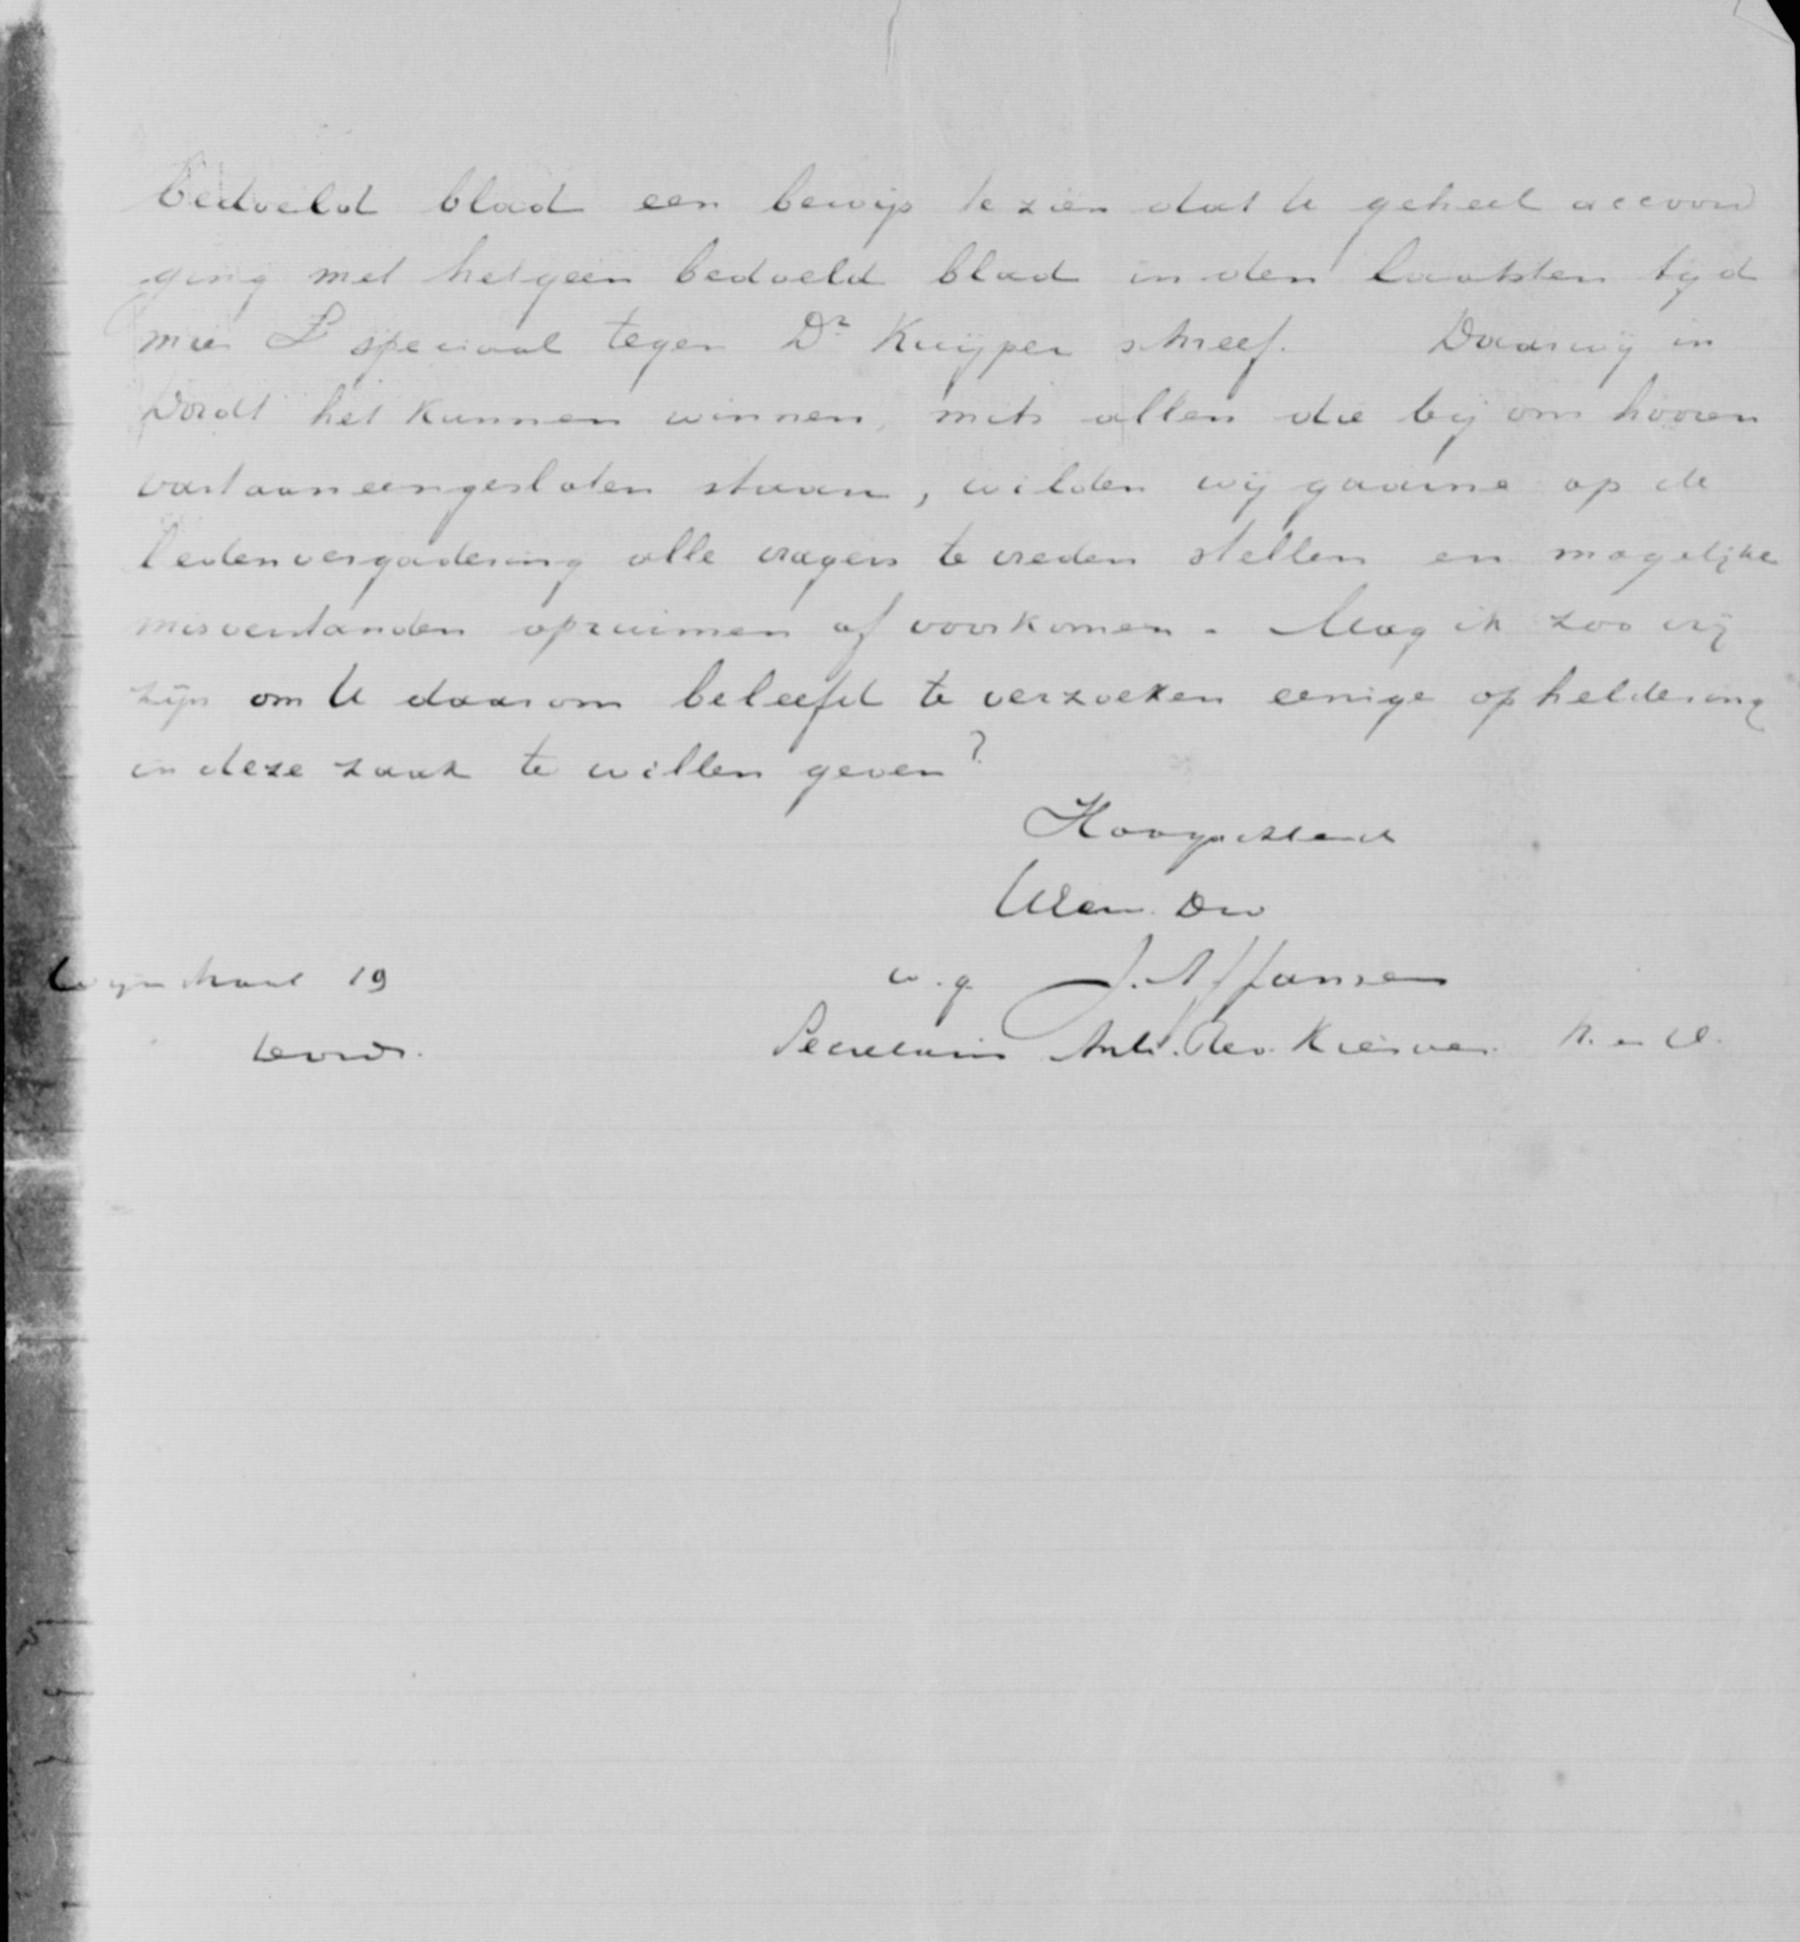 bedoeld blad een bewijs te zien dat U geheel accoord
ging met hetgeen bedoeld blad in den laatsten tijd
speciaal tegen Dr Kuijper schreef. Daar wij in
Dordt het kunnen winnen, mits allen die bij ons hooren
vast aaneengesloten staan, wilden wij gaarne op de
ledenvergadering alle vragers te vreden stellen en mogelijke
misverstanden opruimen of voorkomen. Mag ik zoo vrij
zijn om U daarom beleefd te verzoeken eenige opheldering
in deze zaak te willen geven?
Hoogachtend
UEw. Dw
Wijnstraat 19
w.g. J. A. Jansen
Dordr.
Secretaris Anti. Rev. Kiesver.